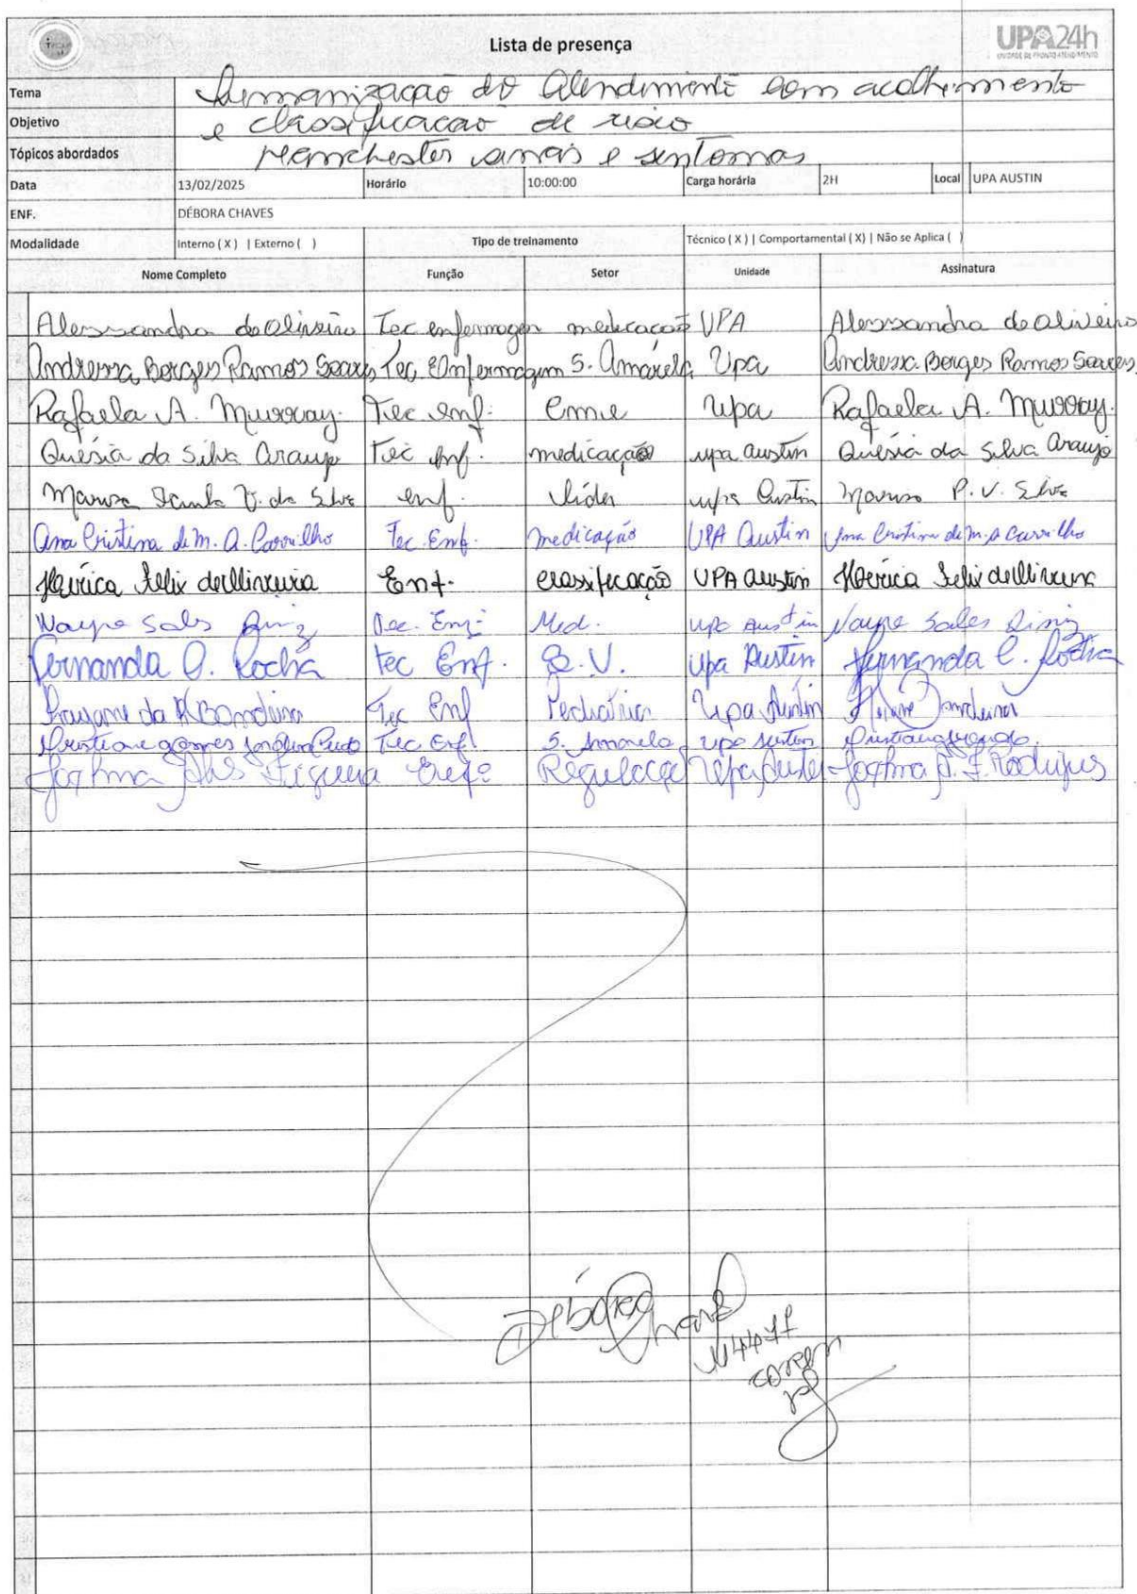 Lista de presença
UPA24h
UNIDADE DE PRONTO ATENDIMENTO
Tema Humanização do Atendimento com acolhimento
Objetivo e classificação de risco
Tópicos abordados Manchester sinais e sintomas
Data 13/02/2025 Horário 10:00:00 Carga horária 2H Local UPA AUSTIN
ENF. DÉBORA CHAVES
Modalidade Interno ( X ) | Externo ( ) Tipo de treinamento Técnico ( X ) | Comportamental ( X) | Não se Aplica ( )
Nome Completo Função Setor Unidade Assinatura
Alessandra de Oliveira Tec enfermagem medicação UPA Alessandra de Oliveira
Andressa Borges Ramos Soares Tec Enfermagem S. Amarela Upa Andressa Borges Ramos Soares
Rafaela A. Murray. Tec enf. Upa Rafaela A. Murray.
Quésia da Silva Araujo Tec enf. medicação upa austin Quésia da Silva Araujo
V. da Silva enf. líder upa Austin P. V. Silva
Ana Cristina de M. A. Carvilho Tec. Enf. medicação UPA Austin Ana Cristina de M. A Carvilho
Felix de Oliveira Enf. classificação UPA austin Felix de Oliveira
Sales Diniz Tec. Enf. Med. upa austin Sales Diniz
Fernanda O. Rocha Tec Enf. S.V. Upa Austin Fernanda O. Rocha
da Bandeira Tec Enf Pediatria Upa Austin Bandeira
Cristiane Gomes Tec Enf. S. Amarela upa austin
Figueira Enfª Regulação Upa Austin F. Rodrigues
Débora Chaves
coren
RJ